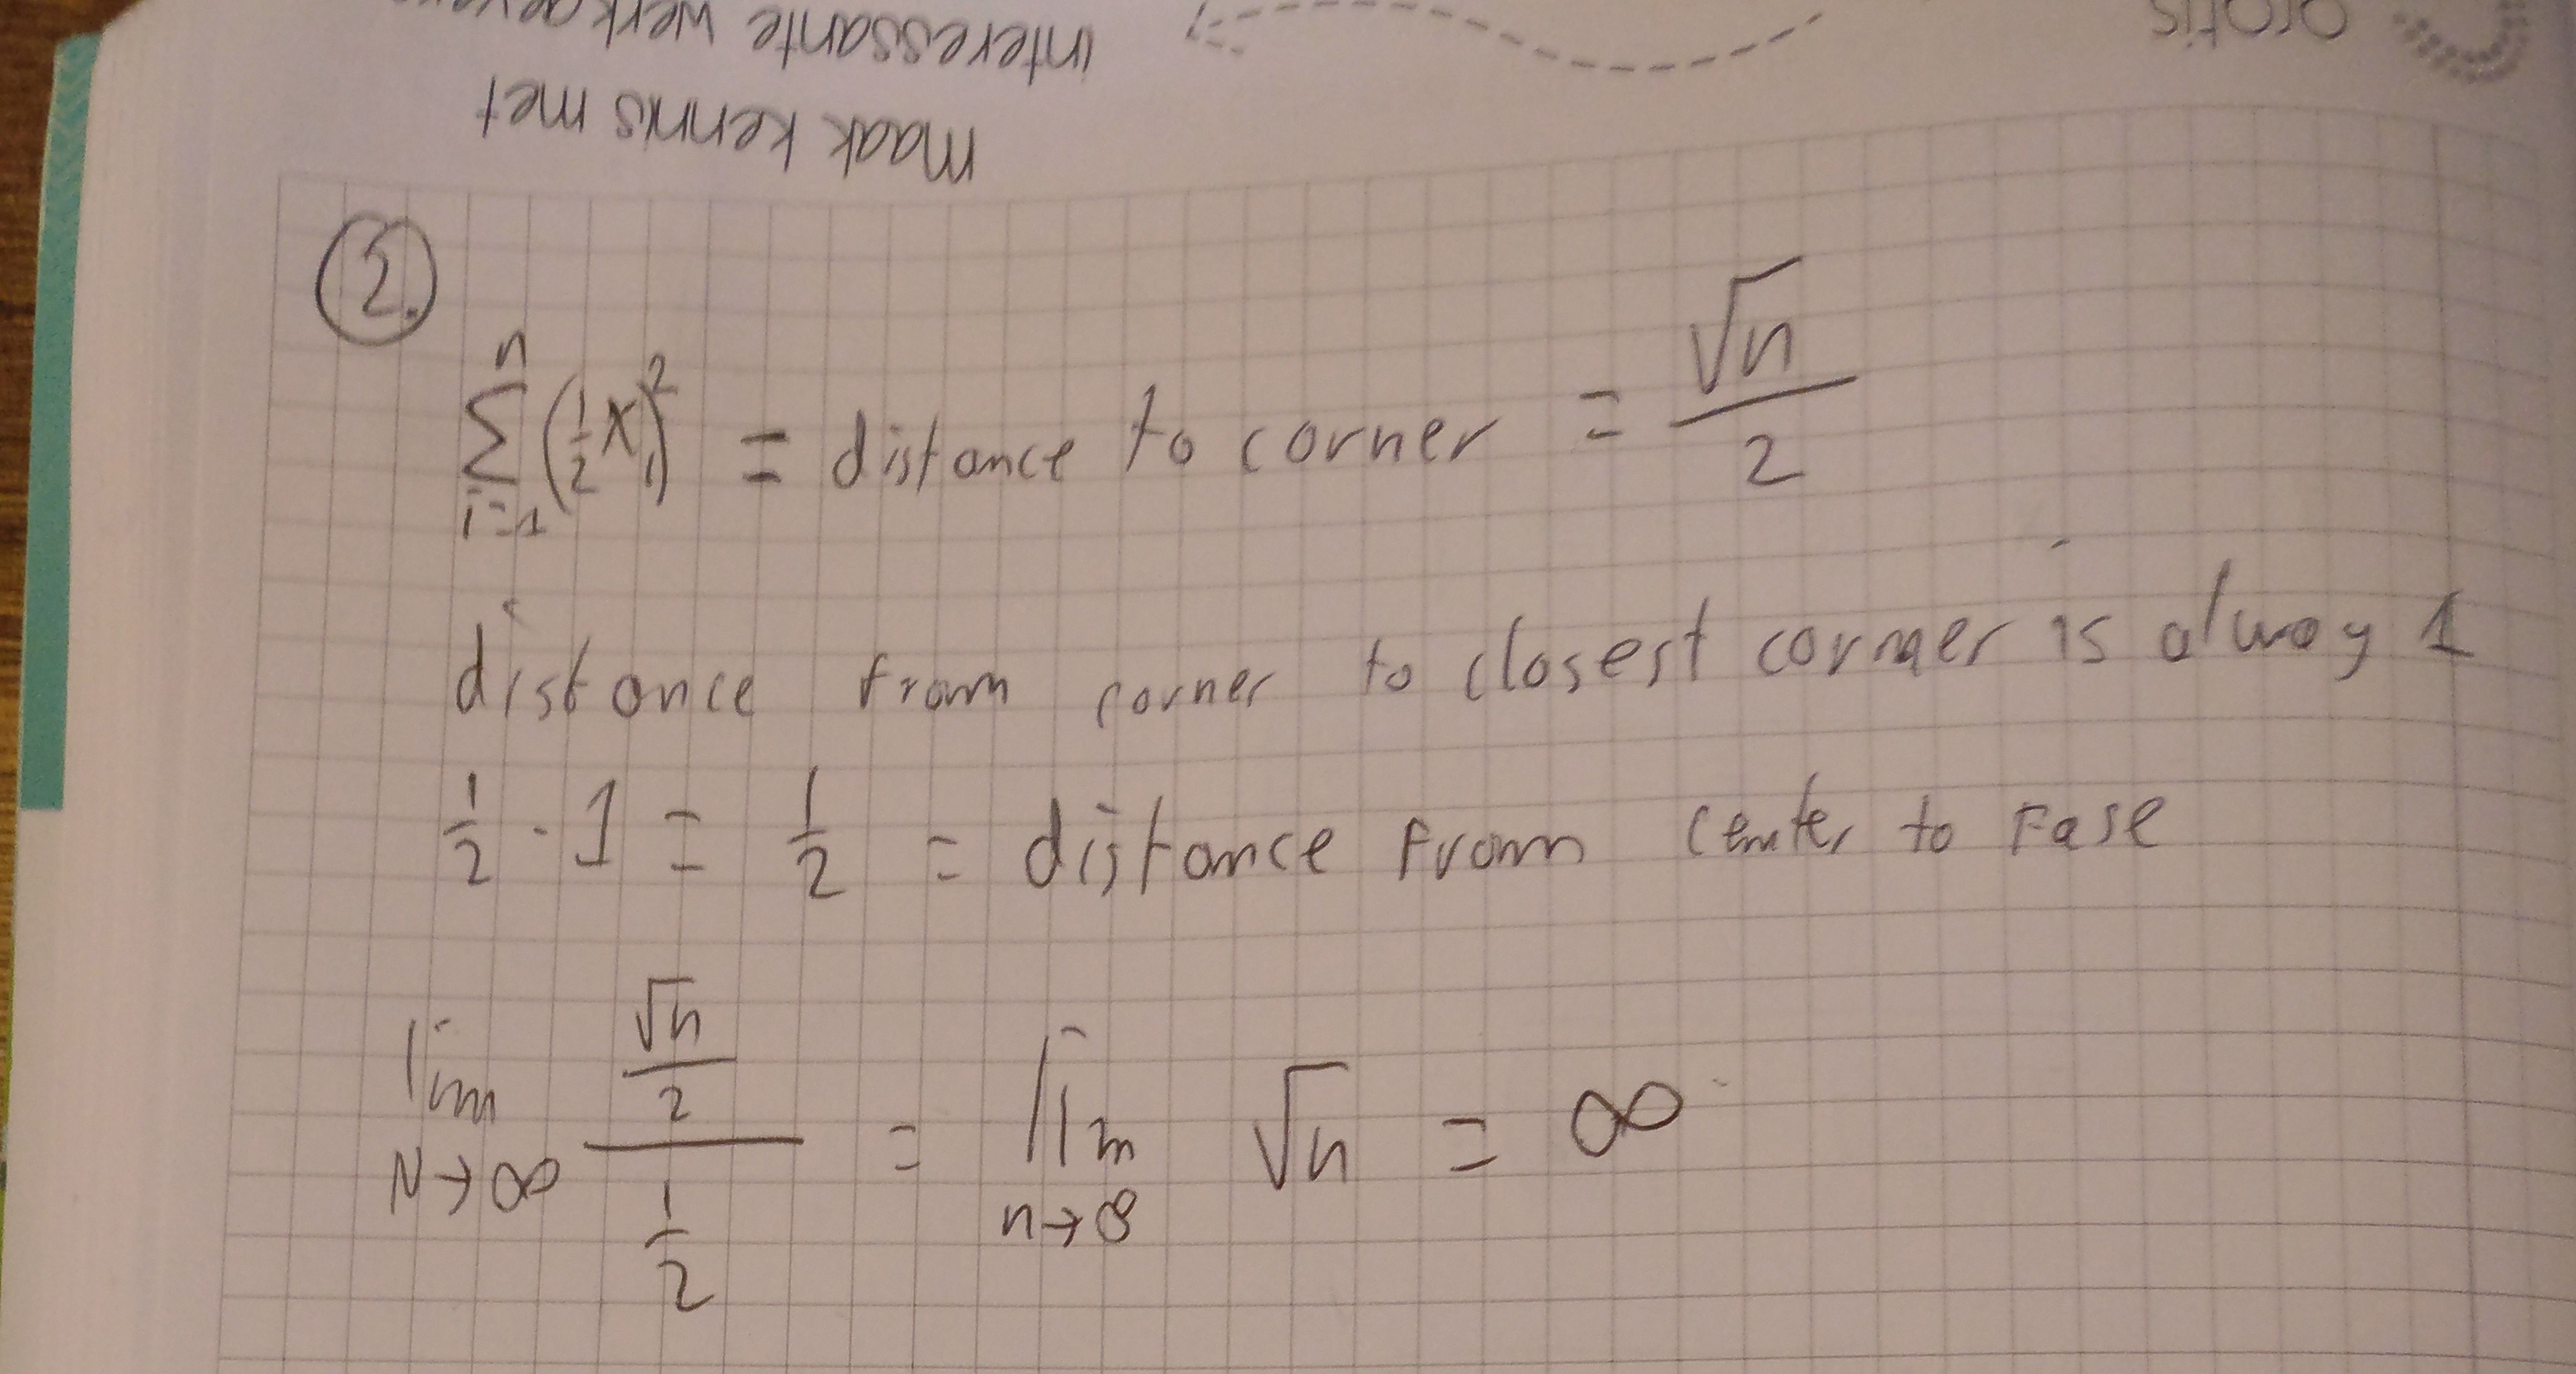 gratis
interessante werkgevers
maak kennis met
2.
n
∑ (1/2 x₁)² = distance to corner = √n / 2
i=1
distance from corner to closest corner is alway 1
1/2 · 1 = 1/2 = distance from center to Fase
lim N→∞ (√n / 2) / (1/2) = lim n→∞ √n = ∞